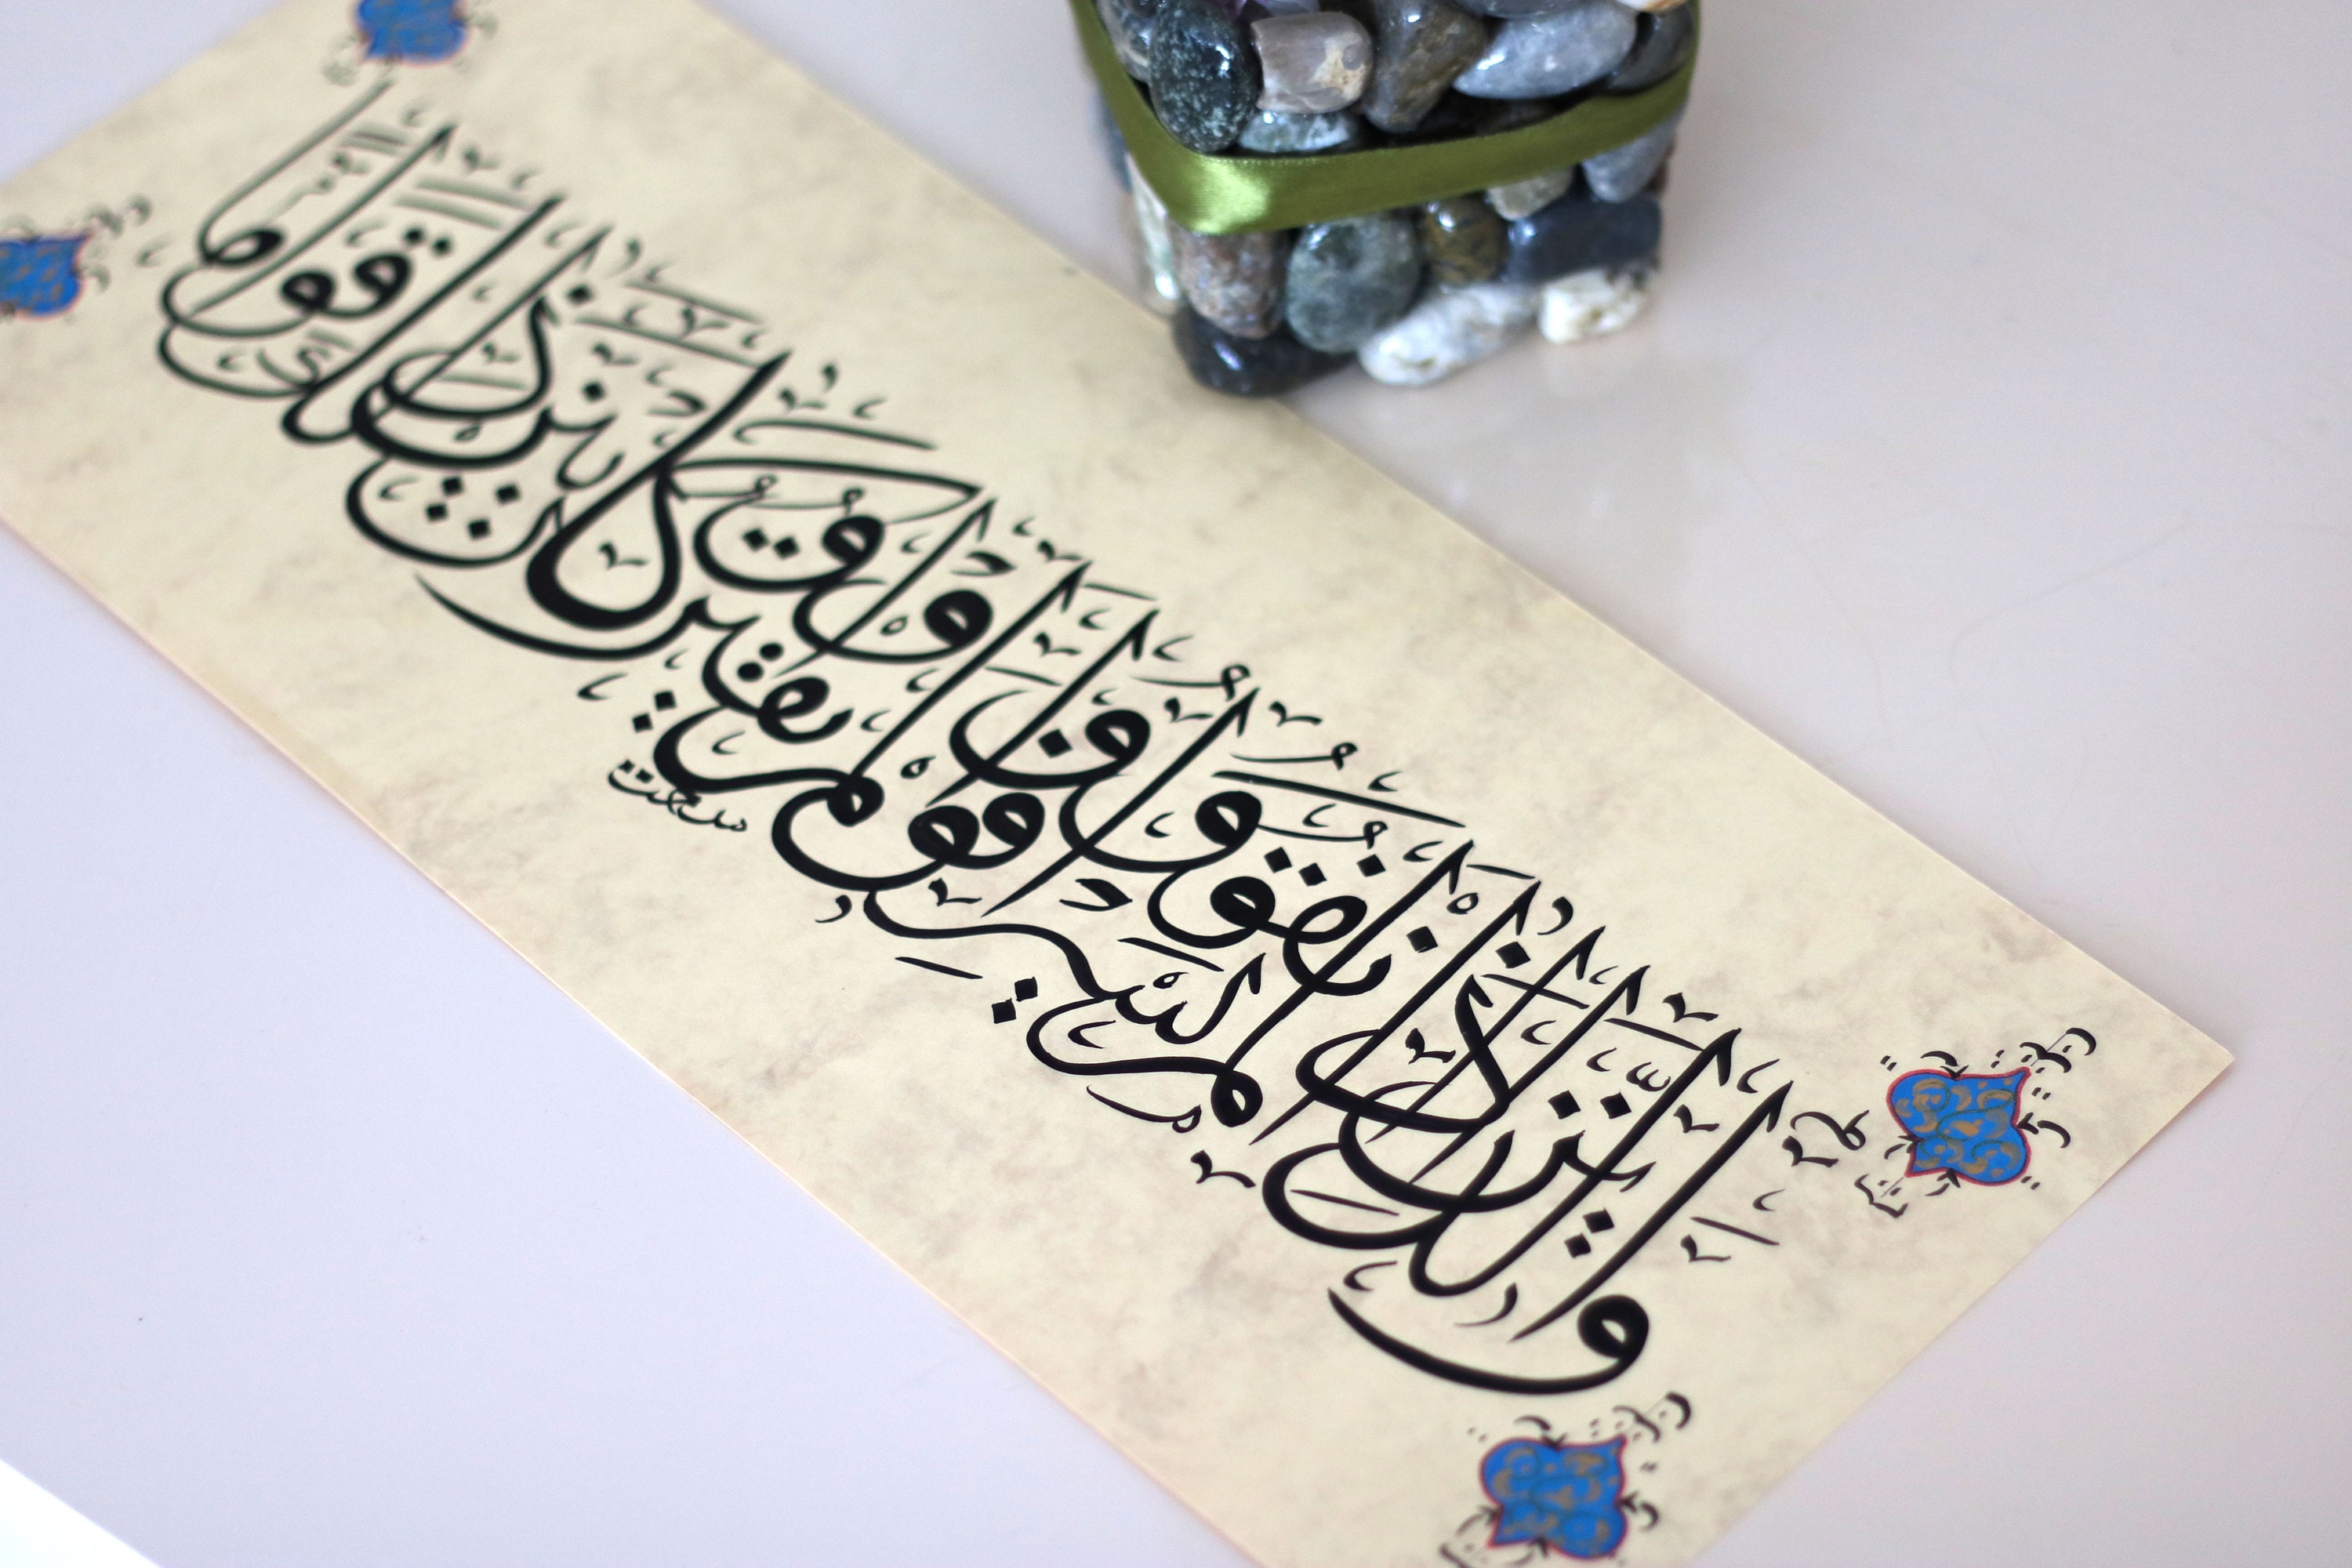 وَالَّذِينَ إِذَا أَنْفَقُوا لَمْ يُسْرِفُوا وَلَمْ يَقْتُرُوا وَكَانَ بَيْنَ ذَلِكَ قَوَامًا